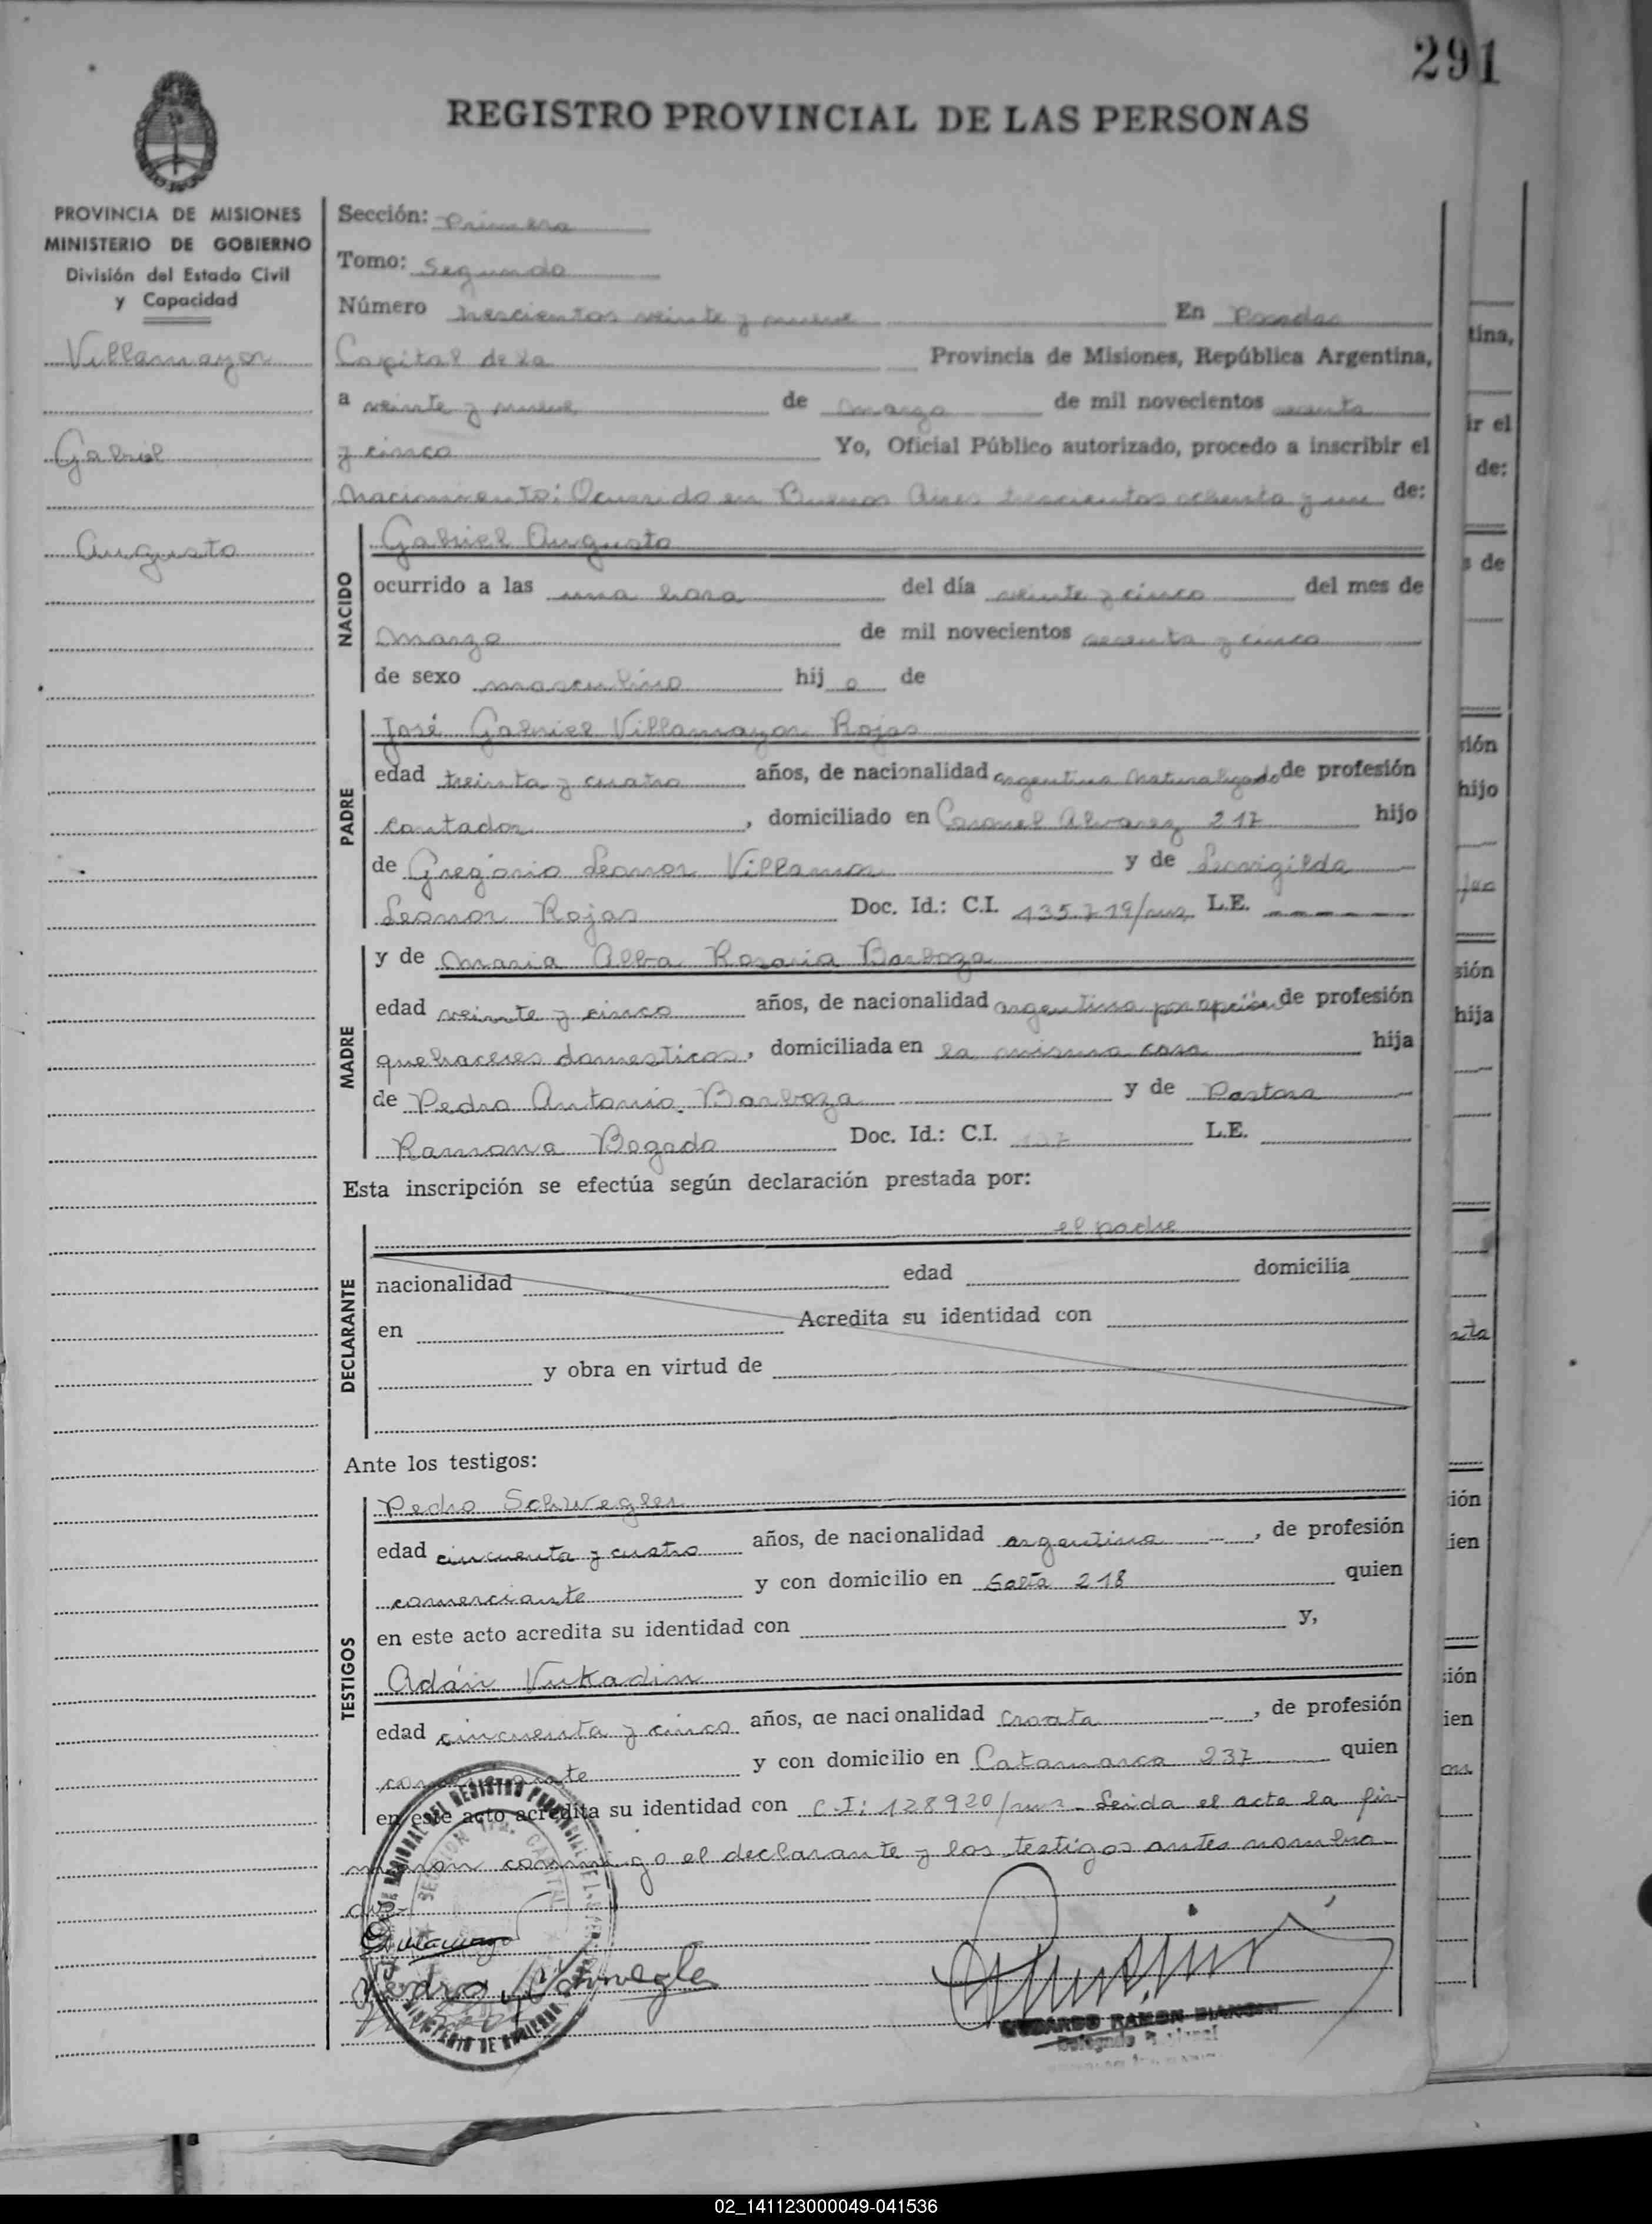 291
REGISTRO PROVINCIAL DE LAS PERSONAS
PROVINCIA DE MISIONES
MINISTERIO DE GOBIERNO
División del Estado Civil
y Capacidad
Villamayor
Gabriel
Augusto
Sección: Primera
Tomo: Segundo
Número trescientos veinte y nueve En Posadas
Capital de la Provincia de Misiones, República Argentina,
a veinte y nueve de marzo de mil novecientos sesenta
y cinco Yo, Oficial Público autorizado, procedo a inscribir el
Nacimiento: Ocurrido en Buenos Aires trescientos ochenta y uno de:
NACIDO
Gabriel Augusto
ocurrido a las una hora del día veinte y cinco del mes de
marzo de mil novecientos sesenta y cinco
de sexo masculino hijo de
PADRE
José Gabriel Villamayor Rojas
edad treinta y cuatro años, de nacionalidad argentina naturalizado de profesión
contador, domiciliado en Coronel Alvarez 217 hijo
de Gregorio Leonor Villamor y de Leovigilda
Leonor Rojas Doc. Id.: C.I. 435.719/mns L.E.
MADRE
y de Maria Alba Rosaria Barboza
edad veinte y cinco años, de nacionalidad argentina por opción de profesión
quehaceres domesticos, domiciliada en la misma casa hija
de Pedro Antonio Barboza y de Pastora
Ramona Bogado Doc. Id.: C.I. L.E.
Esta inscripción se efectúa según declaración prestada por:
DECLARANTE
el padre
nacionalidad edad domicilia
en Acredita su identidad con
y obra en virtud de
Ante los testigos:
TESTIGOS
Pedro Schwegler
edad cincuenta y cuatro años, de nacionalidad argentina, de profesión
comerciante y con domicilio en Salta 218 quien
en este acto acredita su identidad con y,
Adán Vukadin
edad cincuenta y cinco años, de nacionalidad Croata, de profesión
comerciante y con domicilio en Catamarca 237 quien
en este acto acredita su identidad con C.I: 128920/mns. Leida el acta la fir-
maron conmigo el declarante y los testigos antes nombra-
dos-
Pedro Schwegler
02_141123000049-041536